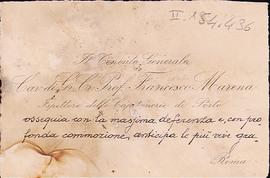 II 134.436
Il Tenente Generale
Cav. di Gr. Cr. Prof. Francesco Marena
Ispettore delle Capitanerie di Porto
ossequia con la massima deferenza e, con pro
fonda commozione, anticipa le più vive gra
Roma